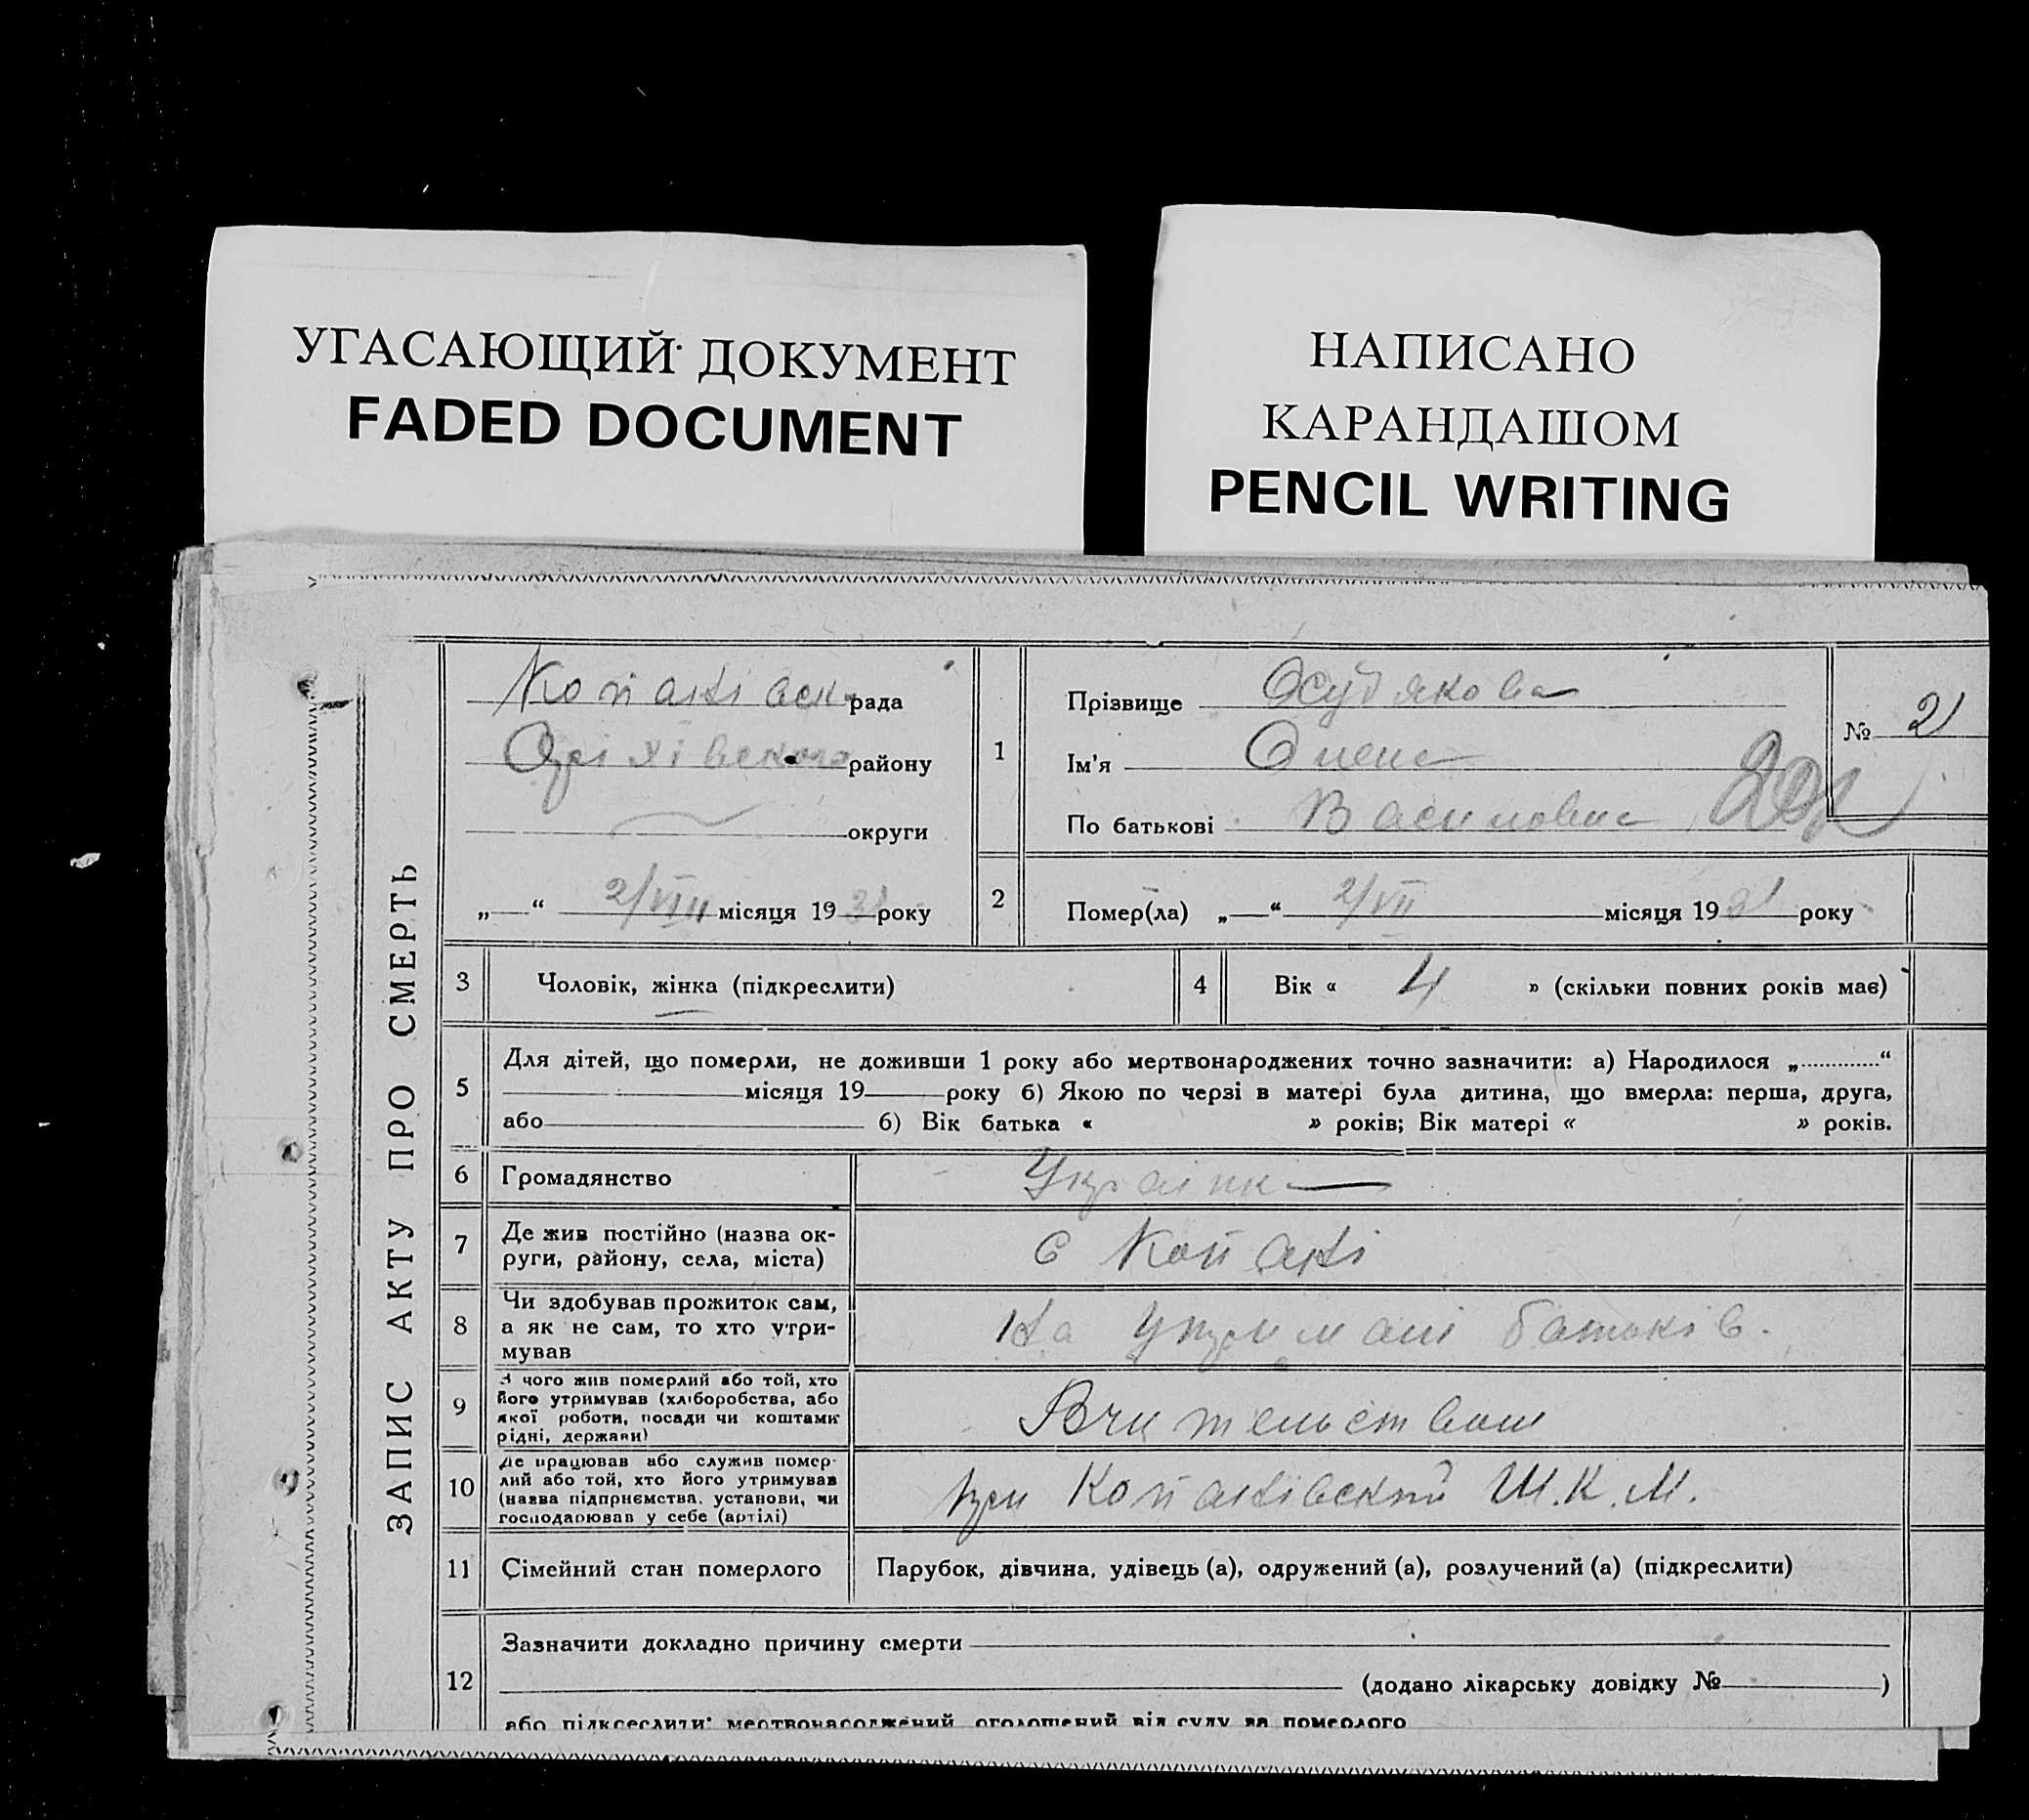 УГАСАЮЩИЙ ДОКУМЕНТ
FADED DOCUMENT
НАПИСАНО
КАРАНДАШОМ
PENCIL WRITING
ЗАПИС АКТУ ПРО СМЕРТЬ
рада
Оріхівського району
округи
„ “ 2/VIII місяця 19 31 року
1
Прізвище
Ім'я Олена
По батькові Василовна
№ 21
2
Помер(ла) „ “ 2/VII місяця 19 31 року
3 Чоловік, жінка (підкреслити)
4 Вік « 4 » (скільки повних років має)
5
Для дітей, що померли, не доживши 1 року або мертвонароджених точно зазначити: а) Народилося „ “
місяця 19 року б) Якою по черзі в матері була дитина, що вмерла: перша, друга,
або б) Вік батька « » років; Вік матері « » років.
6 Громадянство Українка
7
Де жив постійно (назва ок-
руги, району, села, міста)
с Копані
8
Чи здобував прожиток сам,
а як не сам, то хто утри-
мував
На утримані батьків.
9
З чого жив померлий або той, хто
його утримував (хліборобства, або
якої роботи, посади чи коштами
рідні, держави)
Вчительством
10
Де працював або служив помер-
лий або той, хто його утримував
(назва підприємства, установи, чи
господарював у себе (артілі)
при Копанівській Ш.К.М.
11 Сімейний стан померлого Парубок, дівчина, удівець (а), одружений (а), розлучений (а) (підкреслити)
12
Зазначити докладно причину смерти
(додано лікарську довідку № )
або підкреслити: мертвонароджений, оголошений від суду за померлого